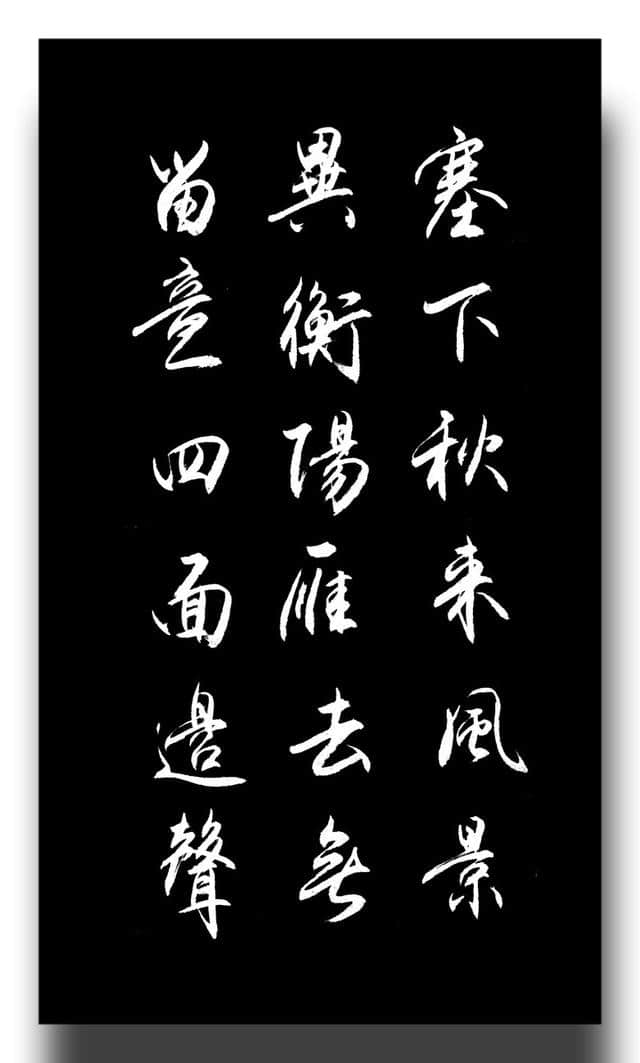 塞下秋来風景
異衡陽雁去無
留意四面邊聲